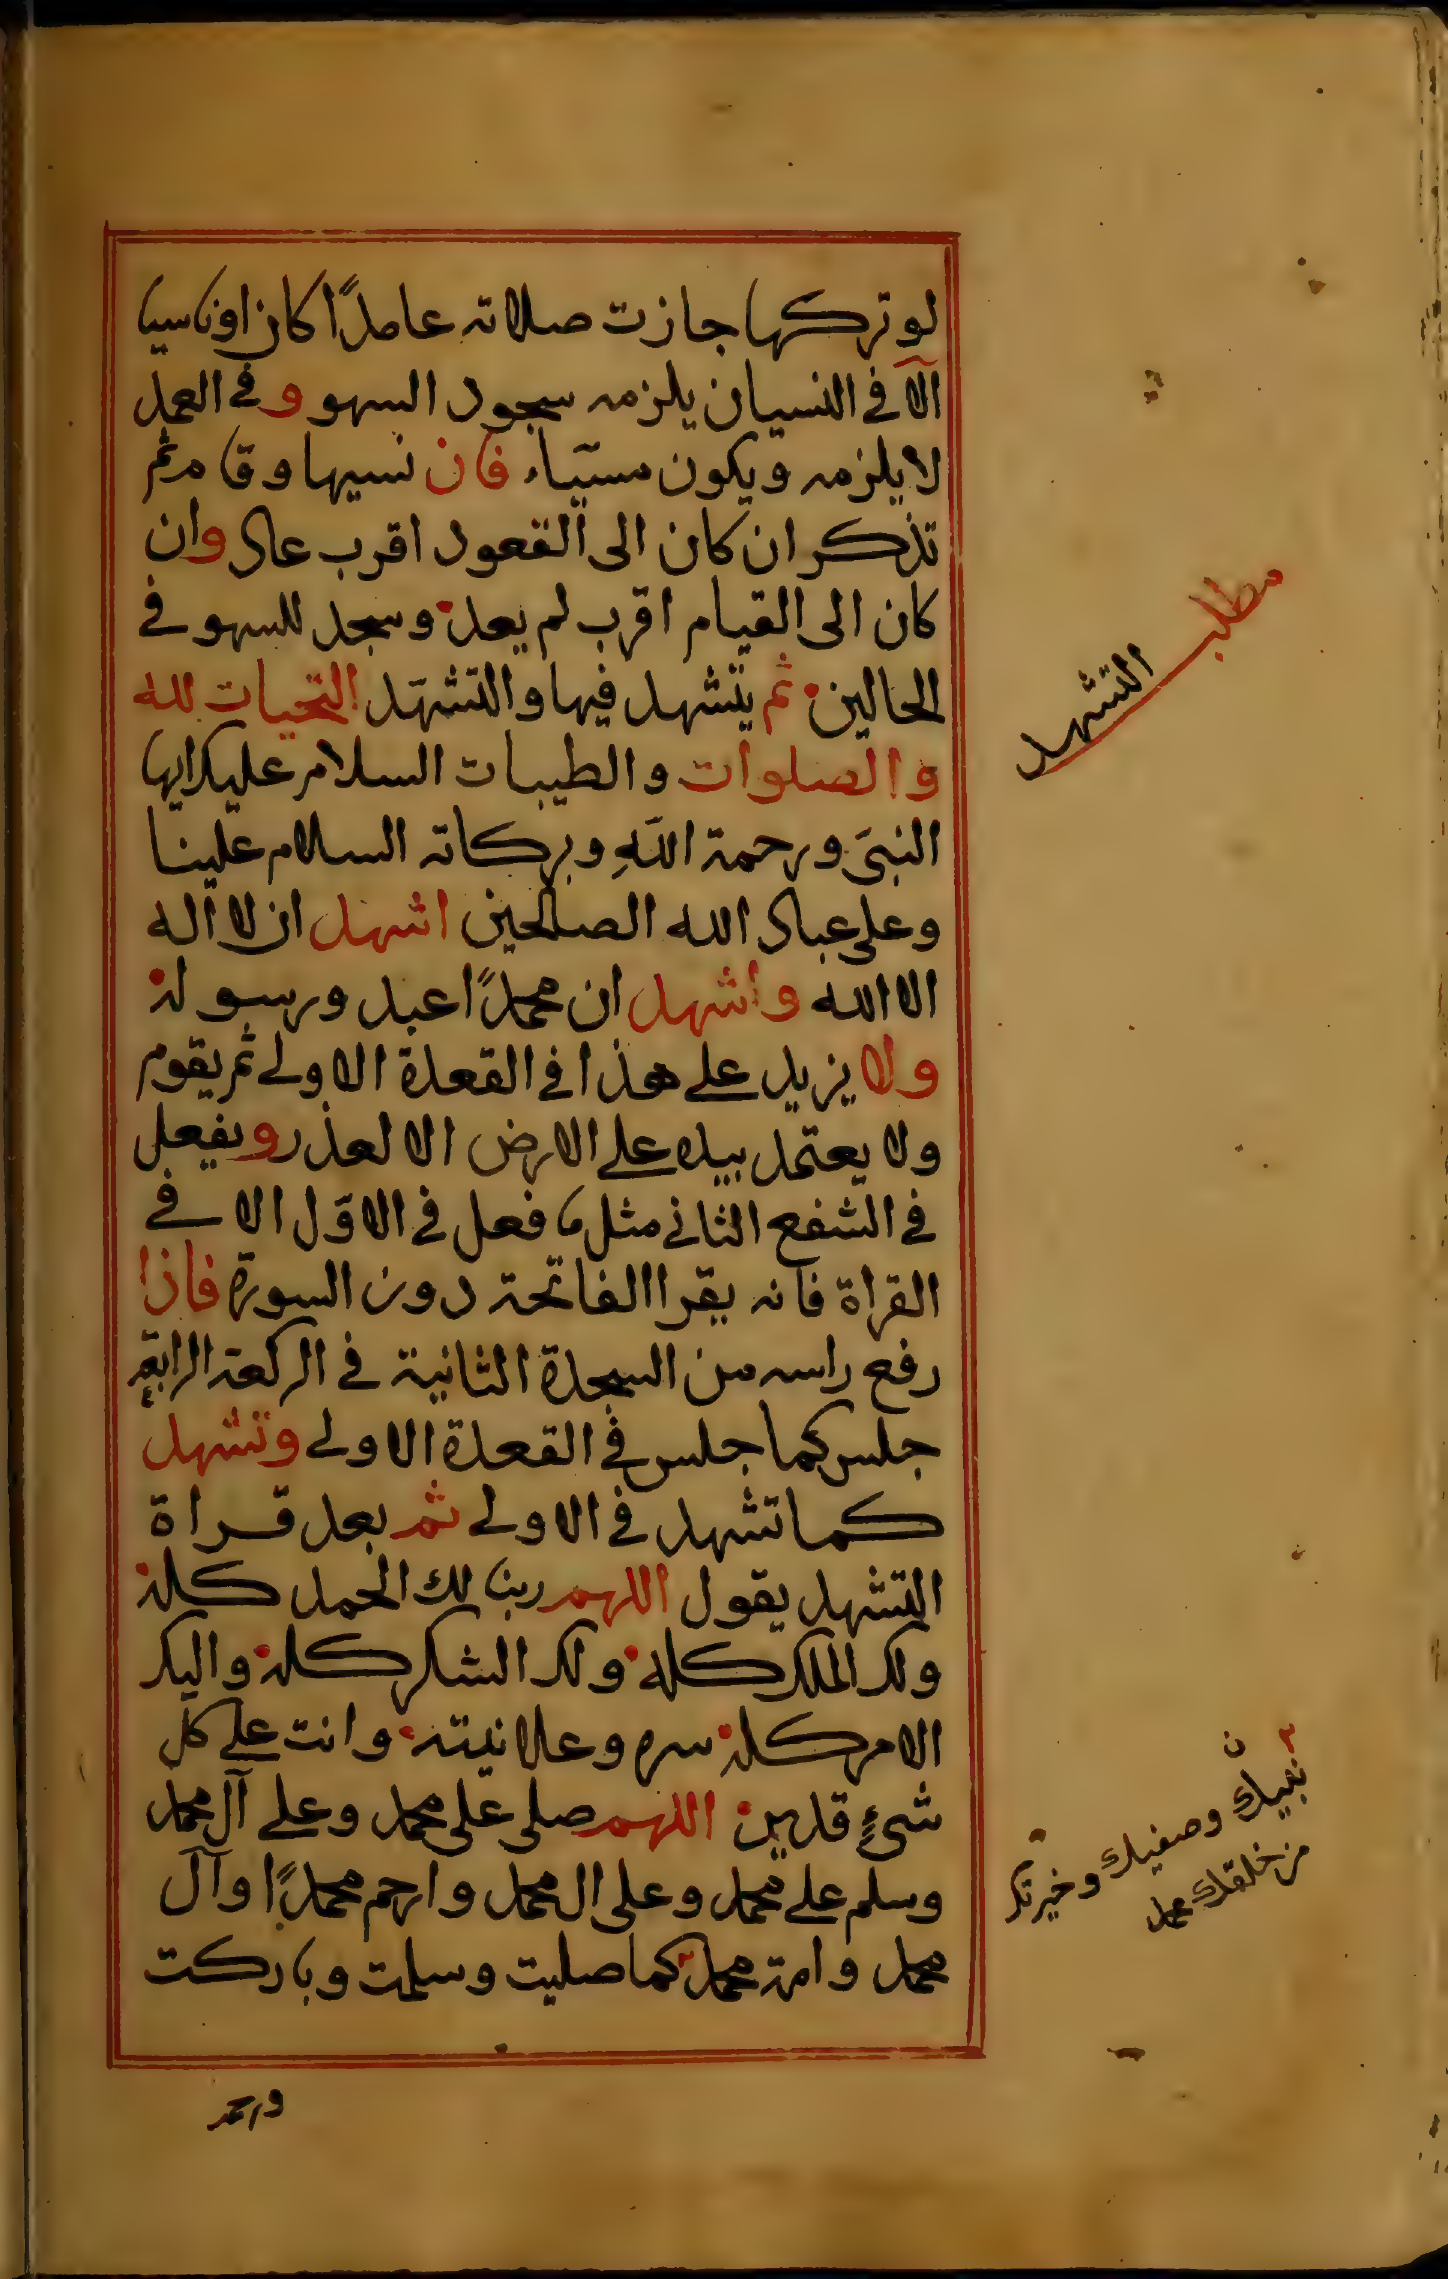 لو تركها جازت صلاته عامدًا كان او ناسيا
الا في النسيان يلزمه سجود السهو و في العمد
لا يلزمه ويكون مسيّاء فان نسيها وقام ثم
تذكر ان كان الى القعود اقرب عاد وان
كان الى القيام اقرب لم يعد وسجد للسهو في
الحالين ثم يتشهد فيها والتشهّد التحيات لله
والصلوات والطيبات السلام عليك ايها
النبىّ ورحمة اللّهِ وبركاته السلام علينا
وعلى عباد الله الصالحين اشهد ان لا اله
الا الله واشهد ان محمدًا عبد ورسوله
ولا يزيد على هذا في القعدة الاولى ثم يقوم
ولا يعتمد بيده على الارض الا لعذر ويفعل
في الشفع الثاني مثل ما فعل في الاوّل الا في
القراة فانه يقرا الفاتحة دون السورة فاذا
رفع راسه من السجدة الثانية في الركعة الرابعة
جلس كما جلس في القعدة الاولى وتشهد
كما تشهد في الاولى ثم بعد قراة
التشهد يقول اللهم ربنا لك الحمد كله
ولك الملك كله ولك الشكر كله واليك
الامر كله سره وعلانيته وانت على كل
شىءٍ قدير اللهم صلى على محمد وعلى آل محمد
وسلم على محمد وعلى ال محمد وارحم محمدًا وآل
محمد وامة محمد كما صليت وسلمت وباركت
مطلب
التشهد
ن
نبيك وصفيك وخيرتك
من خلقك محمد
ورحمة